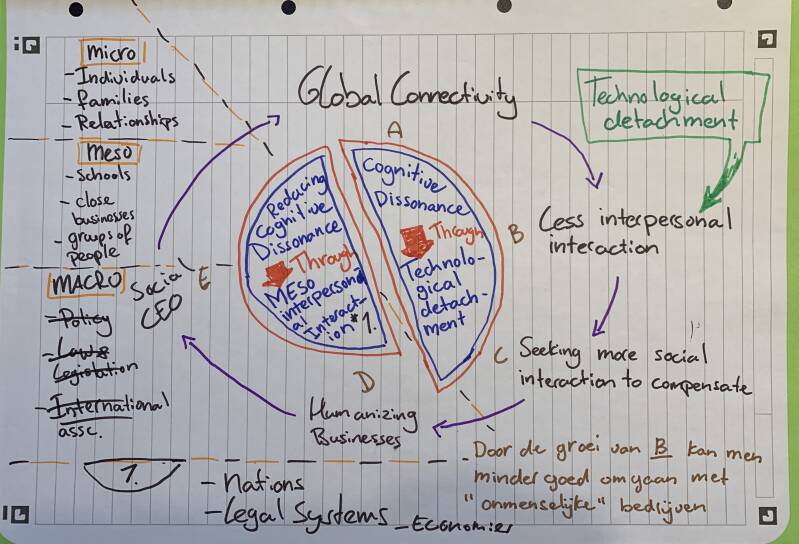 micro
- Individuals
- families
- Relationships
Meso
- Schools
- close
businesses
- groups of
people
MACRO
- Policy
- Laws
Legislation
- International
assc.
Global Connectivity
Technological
detachment
A
Less interpersonal
interaction
B
Seeking more social
interaction to compensate
C
Humanizing
Businesses
D
Social
CEO
E
Reducing
Cognitive
Dissonance
Through
MESO
interperson
al
Interact-
ion *1.
Cognitive
Dissonance
Through
Technolo-
gical
detach-
ment
1.
- Nations
- Legal Systems
- Economies
- Door de groei van B kan men
minder goed omgaan met
"onmenselijke" bedrijven